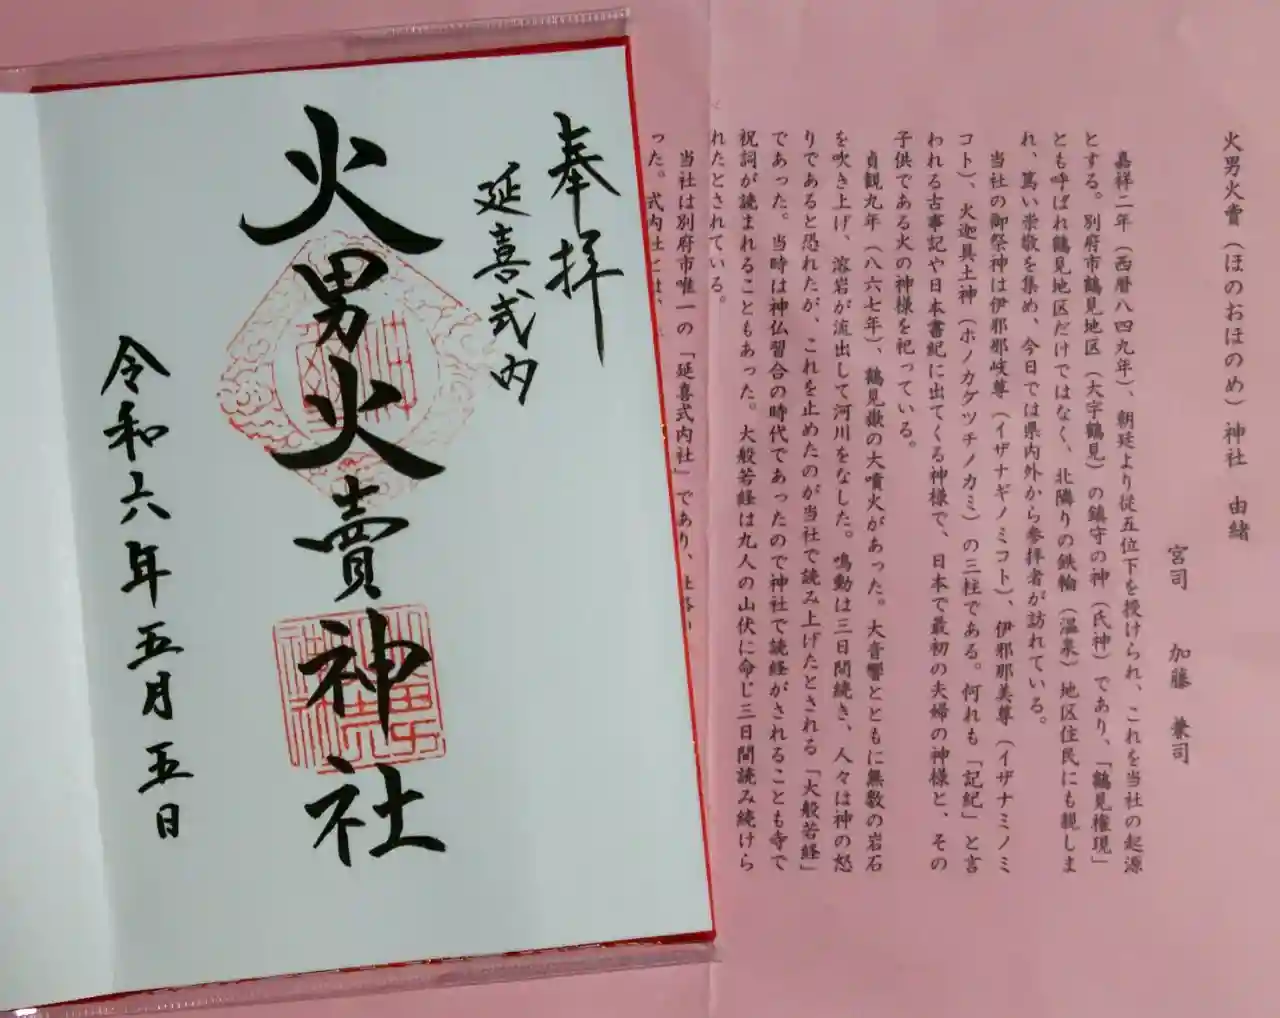 火男火賣（ほのおほのめ）神社　由緒
宮司　加藤　兼司
嘉祥二年（西暦八四九年）、朝廷より従五位下を授けられ、これを当社の起源
とする。別府市鶴見地区（大字鶴見）の鎮守の神（氏神）であり、「鶴見権現」
とも呼ばれ鶴見地区だけではなく、北隣りの鉄輪（温泉）地区住民にも親しま
れ、篤い崇敬を集め、今日では県内外から参拝者が訪れている。
当社の御祭神は伊邪那岐尊（イザナギノミコト）、伊邪那美尊（イザナミノミ
コト）、火迦具土神（ホノカグツチノカミ）の三柱である。何れも「記紀」と言
われる古事記や日本書紀に出てくる神様で、日本で最初の夫婦の神様と、その
子供である火の神様を祀っている。
貞観九年（八六七年）、鶴見嶽の大噴火があった。大音響とともに無数の岩石
を吹き上げ、溶岩が流出して河川をなした。鳴動は三日間続き、人々は神の怒
りであると恐れたが、これを止めたのが当社で読み上げたとされる「大般若経」
であった。当時は神仏習合の時代であったので神社で読経がされることも寺で
祝詞が読まれることもあった。大般若経は九人の山伏に命じ三日間読み続けら
れたとされている。
当社は別府市唯一の「延喜式内社」であり、
った。式内社とは、
奉拝
延喜式内
火男火賣神社
令和六年五月五日